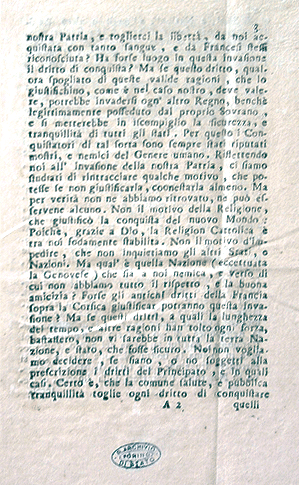 3
nostra Patria, e toglierci la libertà, da noi ac-
quistata con tanto sangue, e da Francesi stessi
riconosciuta? Ha forse luogo in questa invasione
il dritto di conquista? Ma se questo dritto, qual-
ora spogliato di queste valide ragioni, che lo
giustifichino, come è nel caso nostro, deve vale-
re, potrebbe invadersi ogn' altro Regno, benchè
legittimamente posseduto dal proprio Sovrano,
e si metterebbe in iscompiglio la sicurezza, e
tranquillità di tutti gli stati. Per questo i Con-
quistatori di tal sorta sono sempre stati riputati
mostri, e nemici del Genere umano. Riflettendo
noi all' Invasione della nostra Patria, ci siamo
studiati di rintracciare qualche motivo, che po-
tesse se non giustificarla, coonestarla almeno. Ma
per verità non ne abbiamo ritrovato, ne può es-
servene alcuno. Non il motivo della Religione,
che giustificò la conquista del nuovo Mondo:
Poichè, grazie a Dio, la Religion Cattolica è
tra noi sodamente stabilita. Non il motivo d'im-
pedire, che non inquietiamo gli altri Stati, o
Nazioni. Ma qual' è quella Nazione (eccettuata
la Genovese) che sia a noi nemica, e verso di
cui non abbiamo tutto il rispetto, e la buona
amicizia? Forse gli antichi dritti della Francia
sopra la Corsica giustificar potranno questa inva-
sione? Ma se questi dritti, a quali la lunghezza
del tempo, e altre ragioni han tolto ogni forza,
bastassero, non vi sarebbe in tutta la terra Na-
zione, e stato, che fosse sicuro. Noi non voglia-
mo decidere, se siano, o nò soggetti alla
prescrizione i dritti del Principato, e in quali
casi. Certo è, che la comune salute, e pubblica
tranquillità toglie ogni dritto di conquistare
A 2 quelli
ARCHIVIO
DI STATO